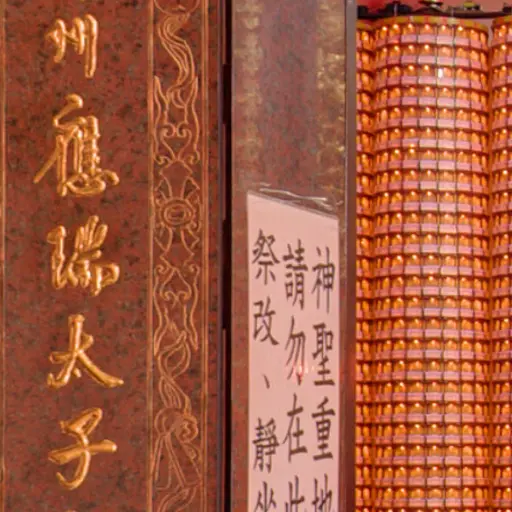 州應瑞太子
神聖重地
請勿在此
祭改、靜坐